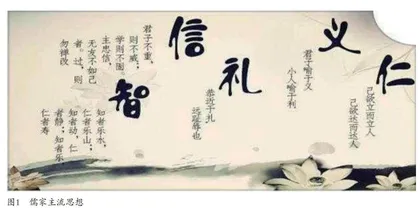 仁
己欲立而立人
己欲达而达人
义
君子喻于义
小人喻于利
礼
恭近于礼
远耻辱也
信
君子不重，
则不威；
学则不固。
主忠信，
无友不如己
者。过，则
勿惮改
智
知者乐水，
仁者乐山；
知者动，仁
者静；知者乐
仁者寿
图1 儒家主流思想